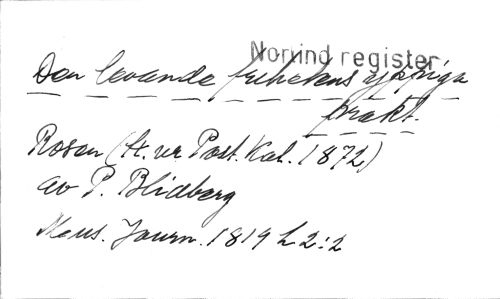 Norlind register
Den levande frihetens yppiga
prakt.
Rosen (St. ur Past. Kal. 1872)
av P. Blidberg
Mus. Journ. 1819 h 2:2